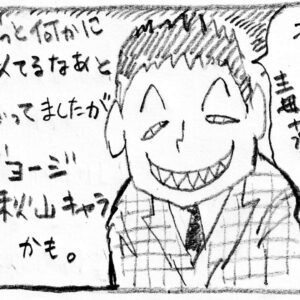 っと何かに
てるなあと
ってましたが
ョージ
秋山キャラ
かも。